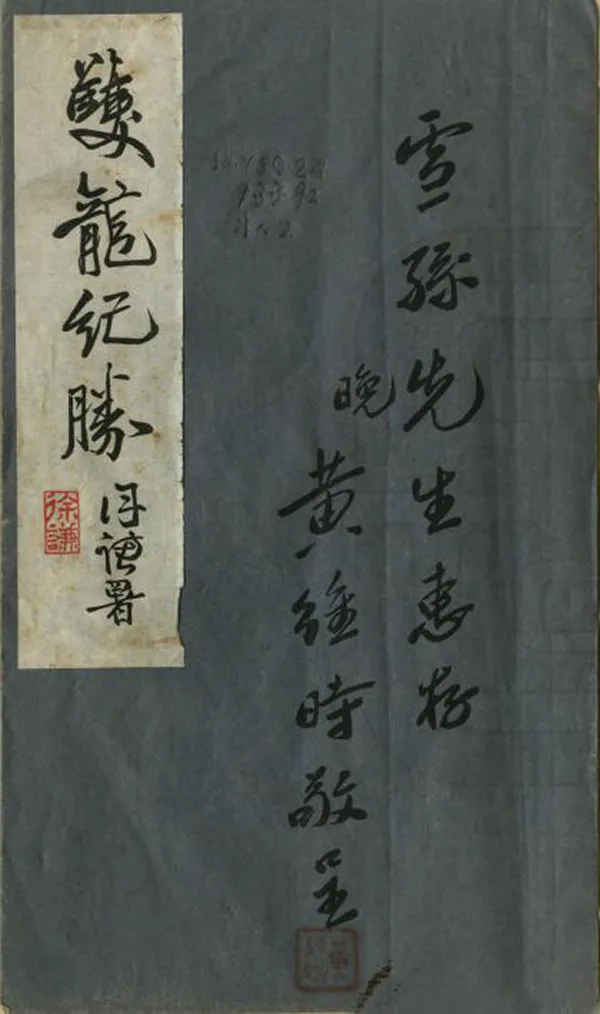 雪孫先生惠存
晚
黃維時敬呈
雙龍紀勝
徐謙署
徐謙